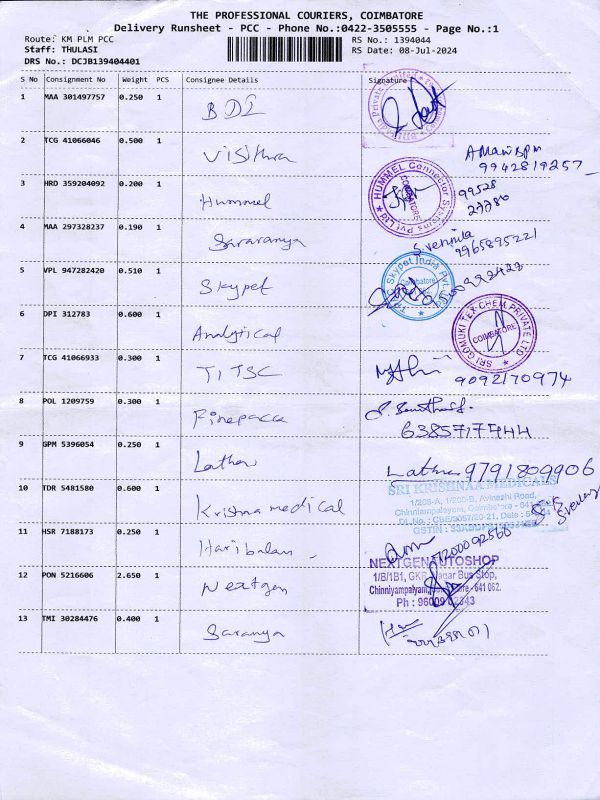 THE PROFESSIONAL COURIERS, COIMBATORE
Delivery Runsheet - PCC - Phone No.:0422-3505555 - Page No.:1
Route: KM PLM PCC
RS No.: 1394044
Staff: THULASI
RS Date: 08-Jul-2024
DRS No.: DCJB139404401
S No Consignment No Weight PCS Consignee Details Signature
1 MAA 301497757 0.250 1 BDI
2 TCG 41066046 0.500 1 Visithra
9942819257
3 HRD 359204092 0.200 1 Hummel
HUMMEL Connector Systems Pvt Ltd
COIMBATORE
99528
4 MAA 297328237 0.190 1 Sararanya
9965895221
5 VPL 947282420 0.510 1 Skypet
Skypet India Pvt
6 DPI 312783 0.600 1 Analytical
SRI GOMUKI TEX CHEM PRIVATE LTD
COIMBATORE
7 TCG 41066933 0.300 1 TITSC
9092170974
8 POL 1209759 0.300 1 Finepacc
6385717944
9 GPM 5396054 0.250 1 Latha
Latha 9791809906
10 TDR 5481580 0.600 1 Krishna medical
SRI KRISHNAA MEDICALS
1/208-A, 1/208-B, Avinashi Road,
Chinniyampalayam, Coimbatore - 641
11 HSR 7188173 0.250 1 Haribalan
12 PON 5216606 2.650 1 Nextgen
NEXTGENAUTOSHOP
1/B/1B1, GKR Nagar Bus Stop,
Chinniyampalayam, 641 062.
Ph : 96009
13 TMI 30284476 0.400 1 Saranya